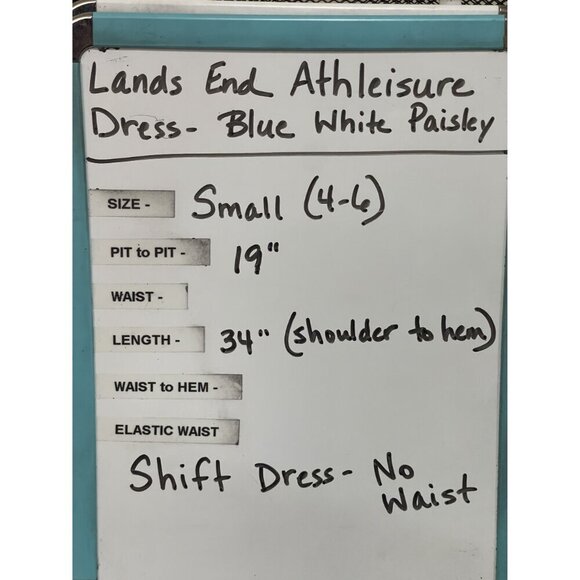 Lands End Athleisure
Dress- Blue White Paisley
SIZE - Small (4-6)
PIT to PIT - 19"
WAIST -
LENGTH - 34" (shoulder to hem)
WAIST to HEM -
ELASTIC WAIST
Shift Dress- No
Waist